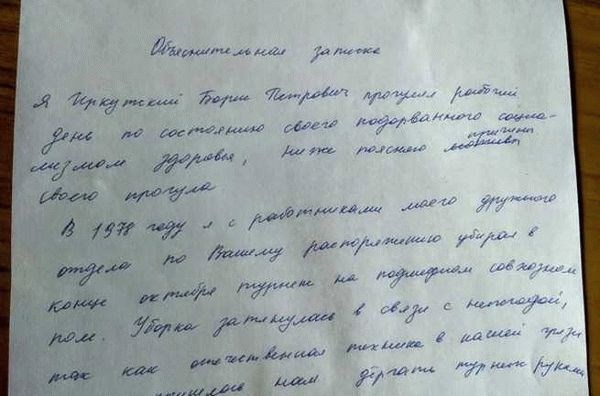 Объяснительная записка
Я Иркутский Борис Петрович прогулял рабочий
день по состоянию своего подорванного социа-
лизмом здоровья, ниже поясняю причины
своего прогула
В 1978 году я с работниками моего дружного
отдела по Вашему распоряжению убирал в
конце октября турнепс на подшефном совхозном
поле. Уборка затянулась в связи с непогодой,
так как отечественная техника в нашей грязи
пришлось нам дёргать турнепс руками